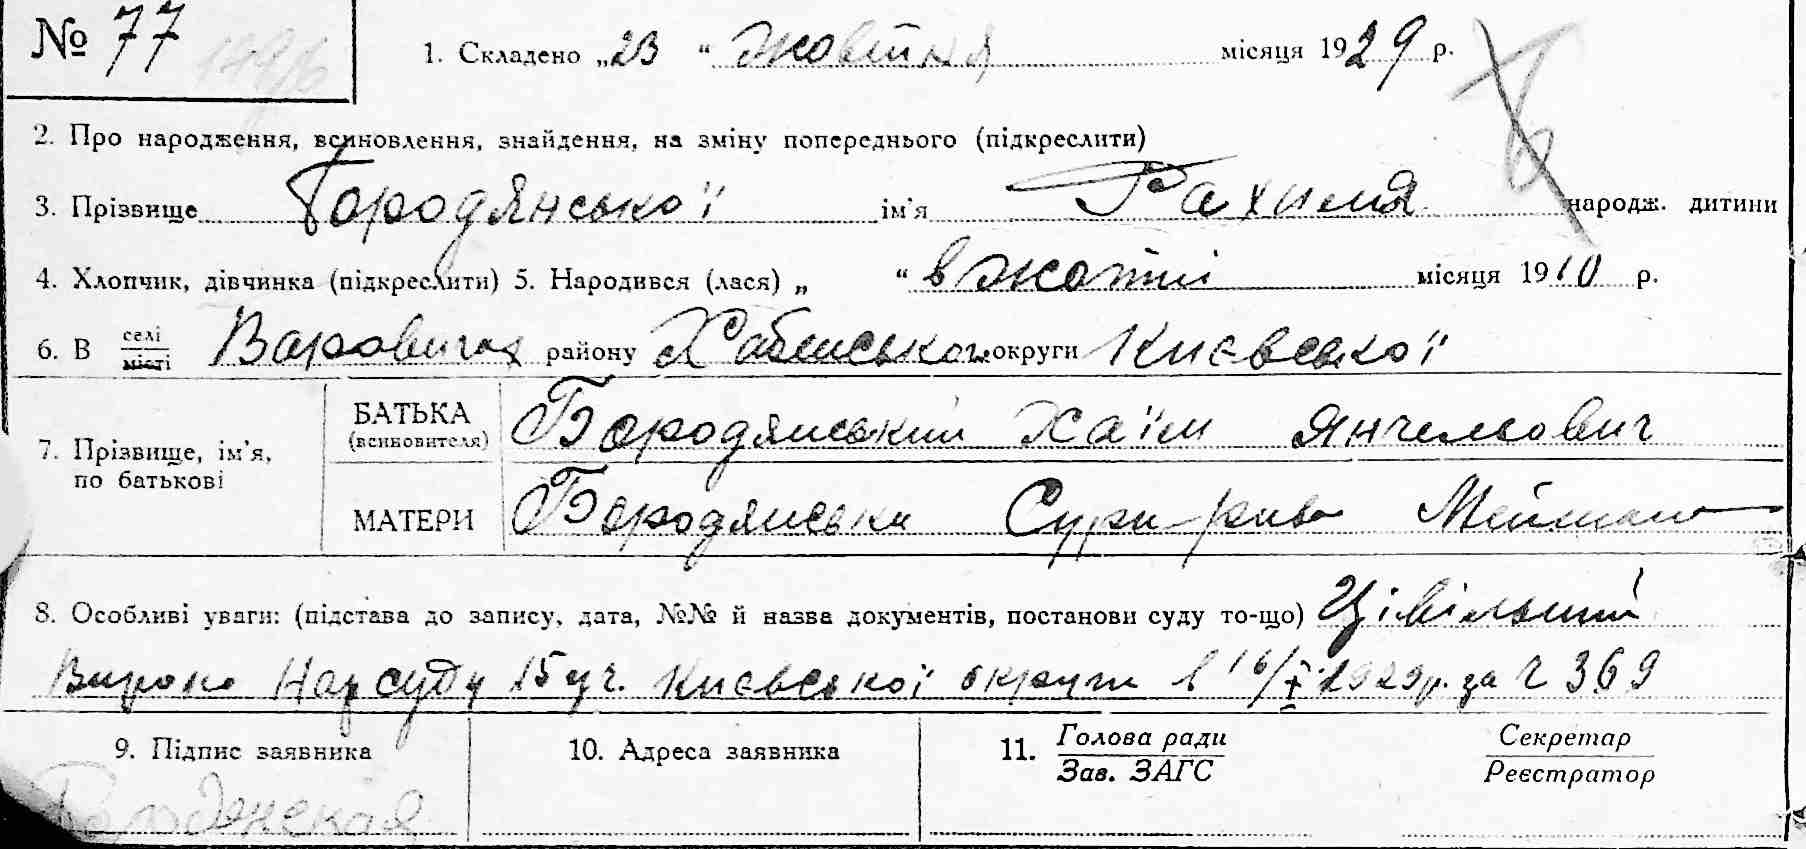 № 77
1. Складено „23 “ жовтня місяця 1929 р.
2. Про народження, всиновлення, знайдення, на зміну попереднього (підкреслити)
3. Прізвище Бородянської ім’я Рахиля народж. дитини
4. Хлопчик, дівчинка (підкреслити) 5. Народився (лася) „ “ в жотні місяця 1910 р.
6. В селі/місті Варовичах району Хабенського округи Києвської
7. Прізвище, ім’я, по батькові
БАТЬКА (всиновителя) Бородянський Хаїм Янчельович
МАТЕРИ Бородянська Сура-Рива
8. Особливі уваги: (підстава до запису, дата, №№ й назва документів, постанови суду то-що) Цівільний
Вирок Нарсуду 15 уч. Києвської округи в 16/X 1929р. за ч 369
9. Підпис заявника 10. Адреса заявника 11. Голова ради/Зав. ЗАГС Секретар/Реєстратор